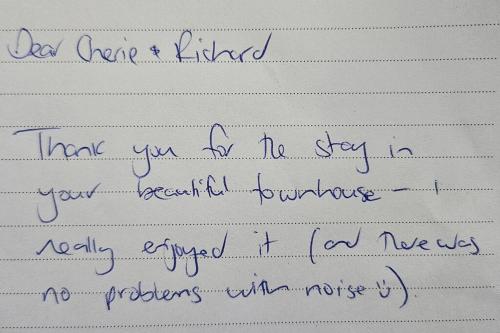 Dear Cherie & Richard
Thank you for the stay in
your beautiful townhouse – I
really enjoyed it (and there was
no problems with noise ☺).